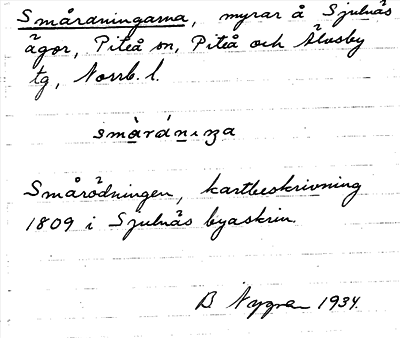 Småradningarna, myrar å Sjulnäs
ägor, Piteå sn, Piteå och Älvsby
tg, Norrb. l.
Smårödningen, kartbeskrivning
1809 i Sjulnäs byaskrin.
B Nygren 1934.